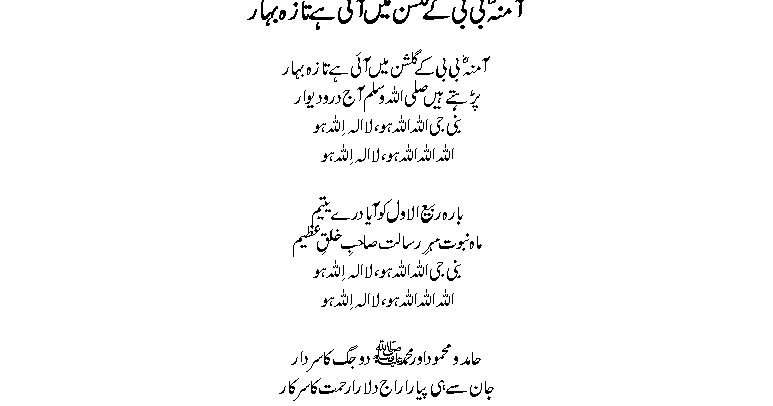 آمنہؓ بی بی کے گلشن میں آئی ہے تازہ بہار
آمنہؓ بی بی کے گلشن میں آئی ہے تازہ بہار
پڑہتے ہیں صلی اللہ وسلم آج درودیوار
نبی جی اللہ اللہ ہو، لا الہ اِللہ ہو
اللہ اللہ اللہ ہو، لا الہ اِللہ ہو
بارہ ربیع الاول کو آیا درے یتیم
ماہ نبوت مہرِ رسالت صاحبِ خلقِ عظیم
نبی جی اللہ اللہ ہو، لا الہ اِللہ ہو
اللہ اللہ اللہ ہو، لا الہ اِللہ ہو
حامد و محمود اور محمد ﷺ دو جگ کا سردار
جان سے ہی پیارا راج دلارا رحمت کا سرکار